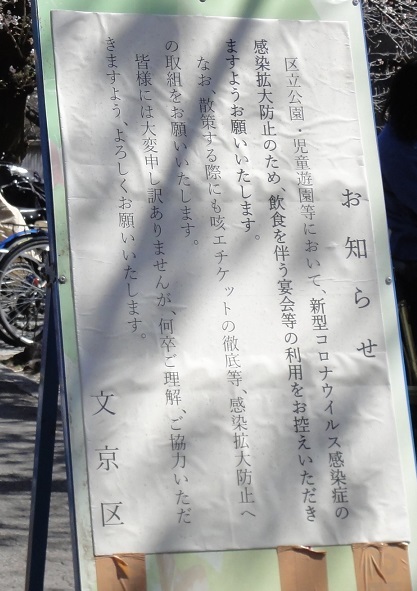 お知らせ
区立公園・児童遊園等において、新型コロナウイルス感染症の
感染拡大防止のため、飲食を伴う宴会等の利用をお控えいただき
ますようお願いいたします。
なお、散策する際にも咳エチケットの徹底等、感染拡大防止へ
の取組をお願いいたします。
皆様には大変申し訳ありませんが、何卒ご理解、ご協力いただ
きますよう、よろしくお願いいたします。
文京区